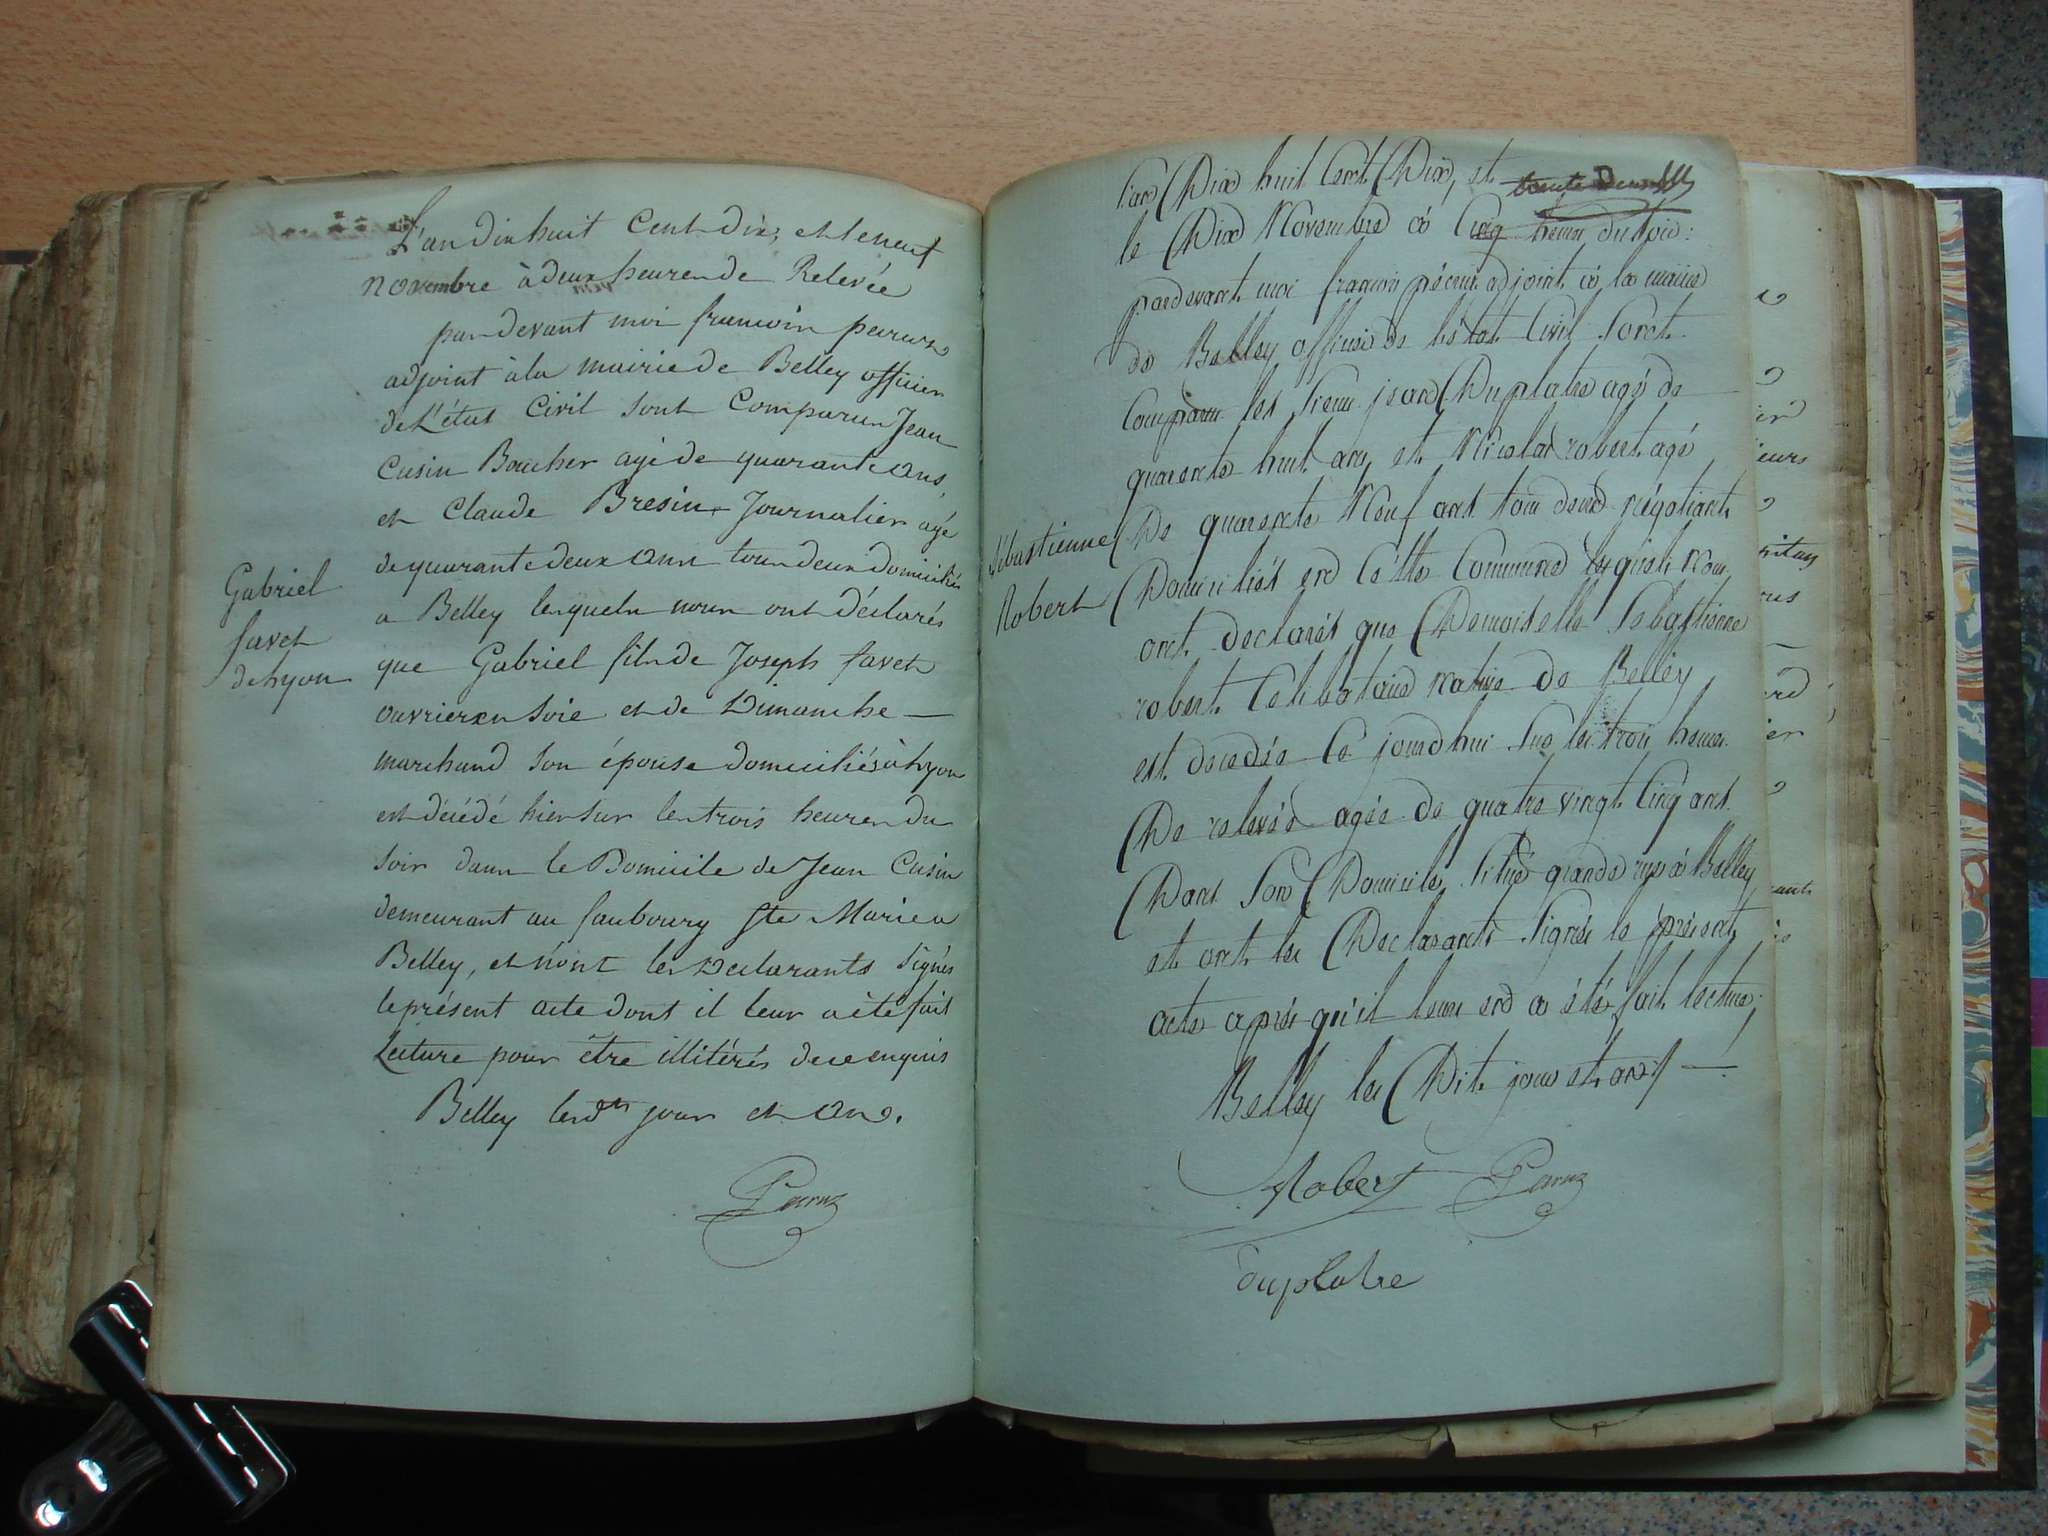 L'an dix huit Cent dix, et le neuf
novembre à deux heures de Relevée
par devant moi francois peruz
adjoint à la mairie de Belley officier
de L'état Civil sont Comparus Jean
Cusin Boucher agé de quarante ans,
et Claude Bresin Journalier agé
de quarante deux ans tous deux domiciliés
a Belley lesquels nous ont déclarés
que Gabriel fils de Joseph favet
ouvrier en soie et de Dimanche —
marchand son épouse domiciliés à Lyon
est décédé hier sur les trois heures du
soir dans le Domicile de Jean Cusin
demeurant au faubourg Ste Marie a
Belley, et n'ont les Déclarants signés
le présent acte dont il leur a été fait
Lecture pour être illitérés de ce enquis
Belley les dts jour et an.
Gabriel
favet
de Lyon
L'an Dix huit Cent Dix, et
trente Deux
le Dix Novembre à Cinq heures du soir
pardevant moi francois adjoint à la mairie
de Belley officier de l'état Civil sont
Comparus les sieurs jean Duplatre agé de
quarente huit ans et Nicolas robert agé
De quarente Neuf ans tous deux négotiants
Domiciliés en Cette Commune lesquels Nous
ont declarés que Demoiselle Sebastienne
robert Celibataire Native de Belley
est decedée Ce jourdhui sur les trois heures
De relevée agée de quatre vingt Cinq ans
Dans son Domicile situé grande rue à Belley
et ont les Declarants signés le présent
acte aprés qu'il leur en a été fait lecture
Belley les Dits jour et an —
Sébastienne
Robert
Robert
duplatre